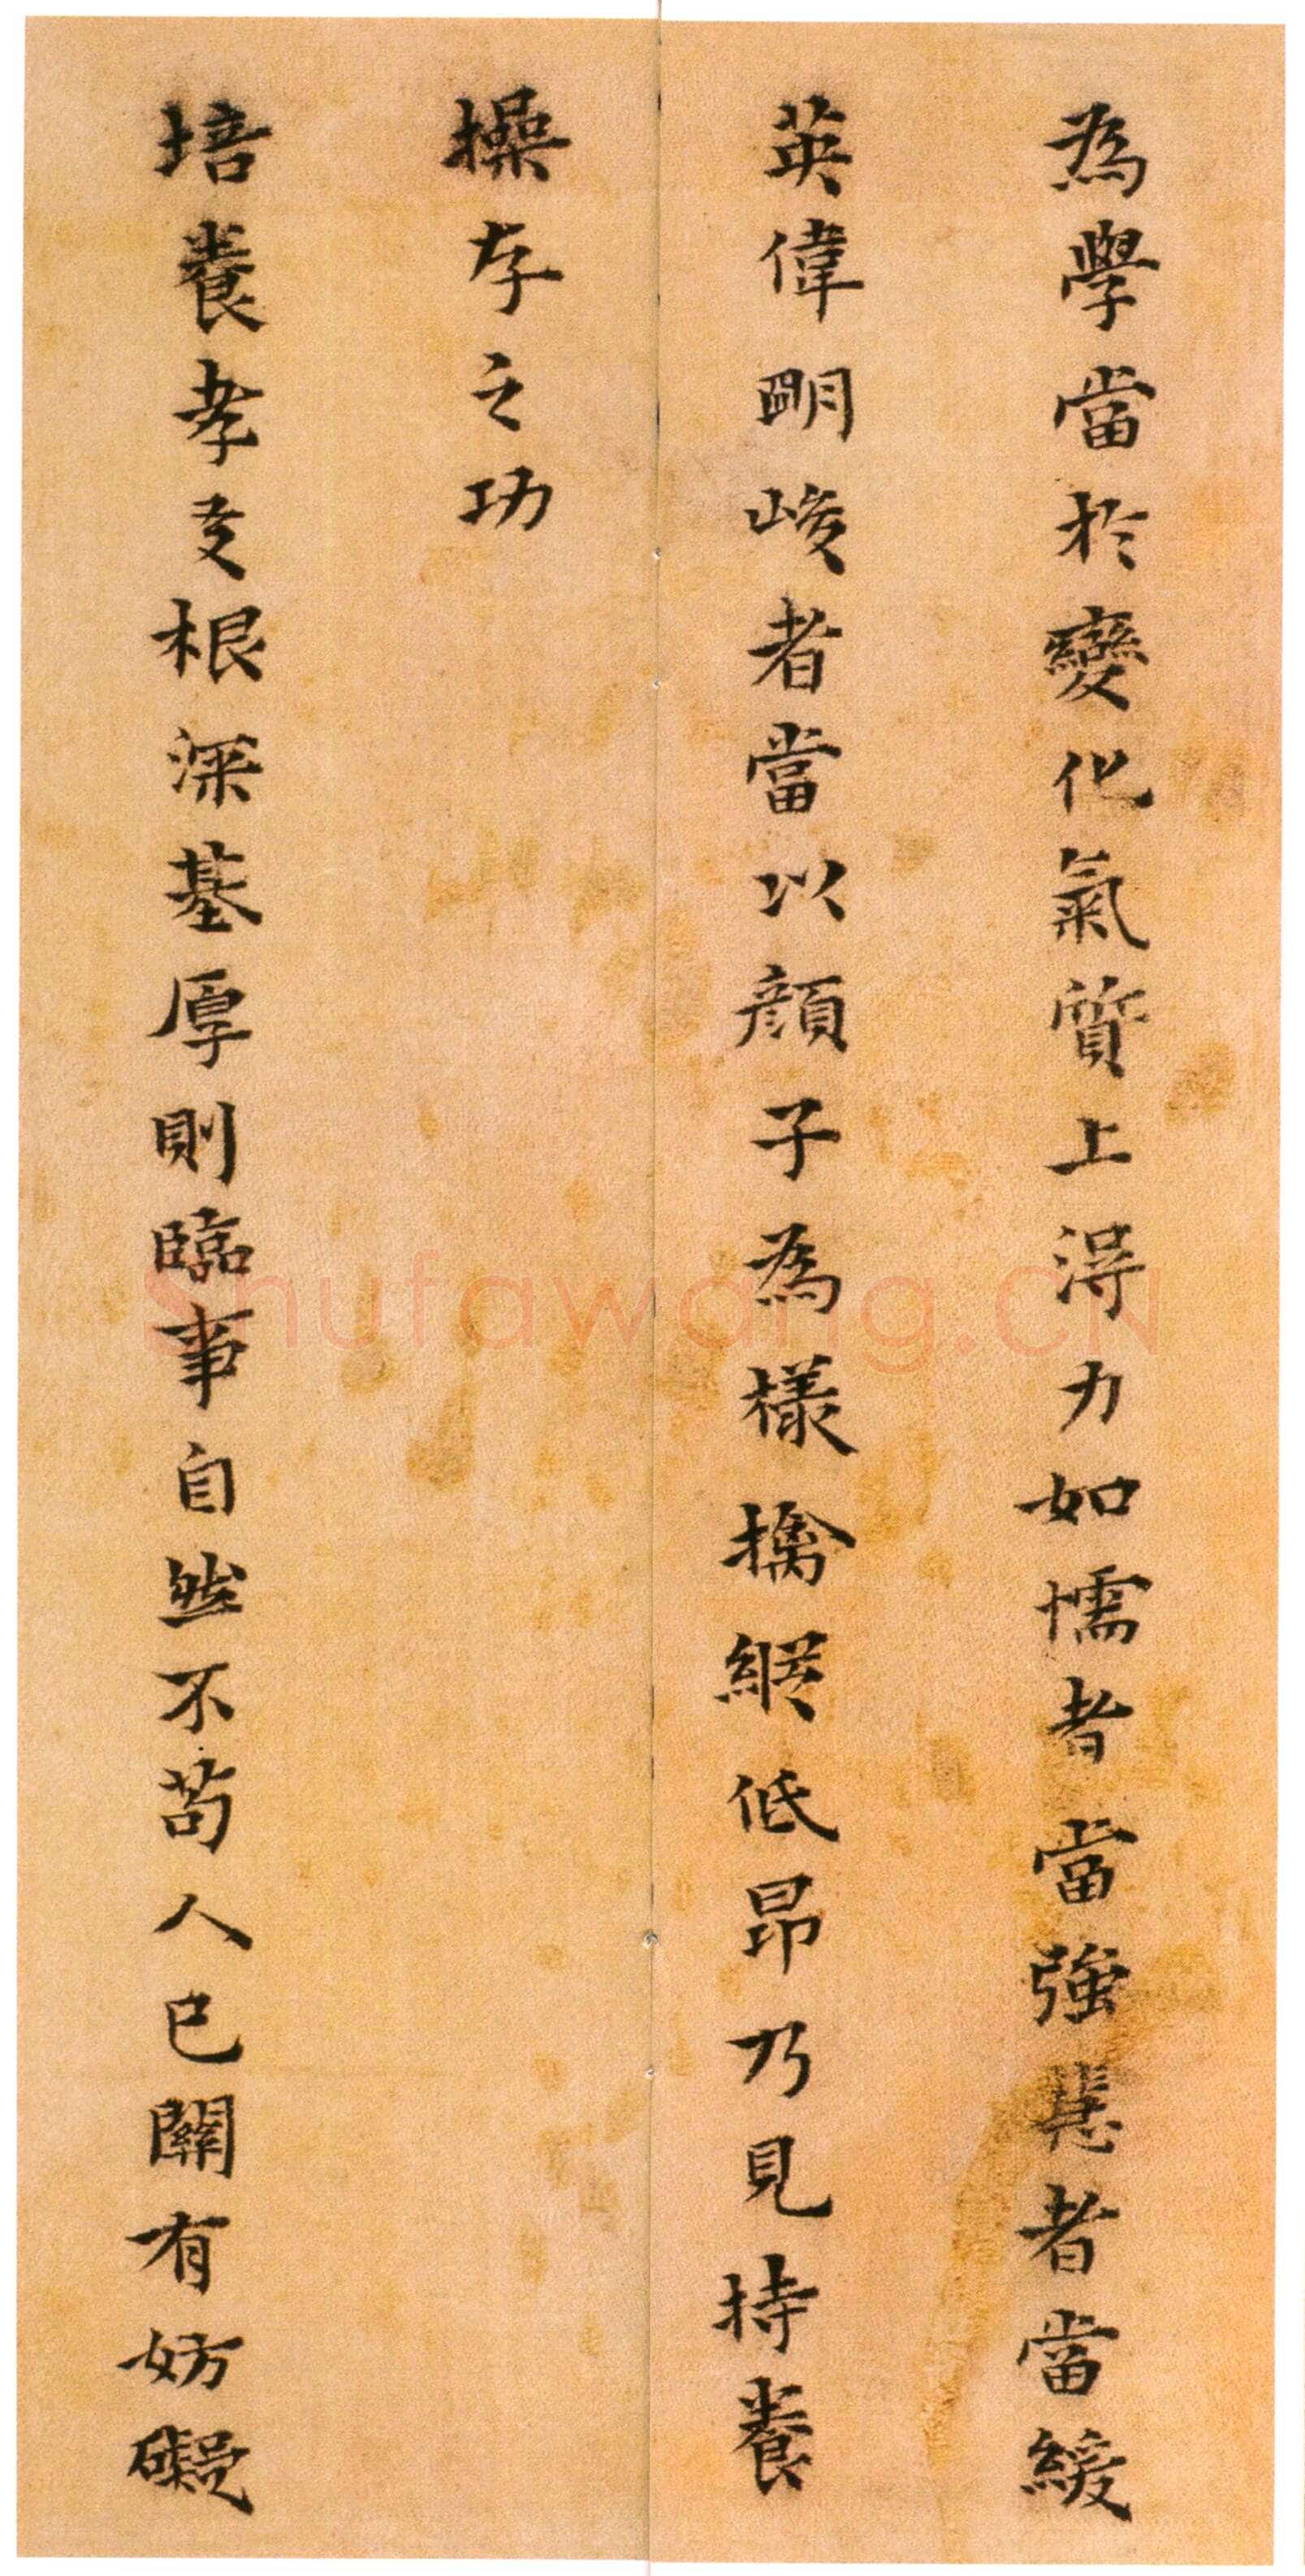 為學當於變化氣質上得力如懦者當強者當緩
英偉明峻者當以顏子為樣擒縱低昂乃見持養
操存之功
培養孝友根深基厚則臨事自然不苟人已關有妨礙
shufawang.CN